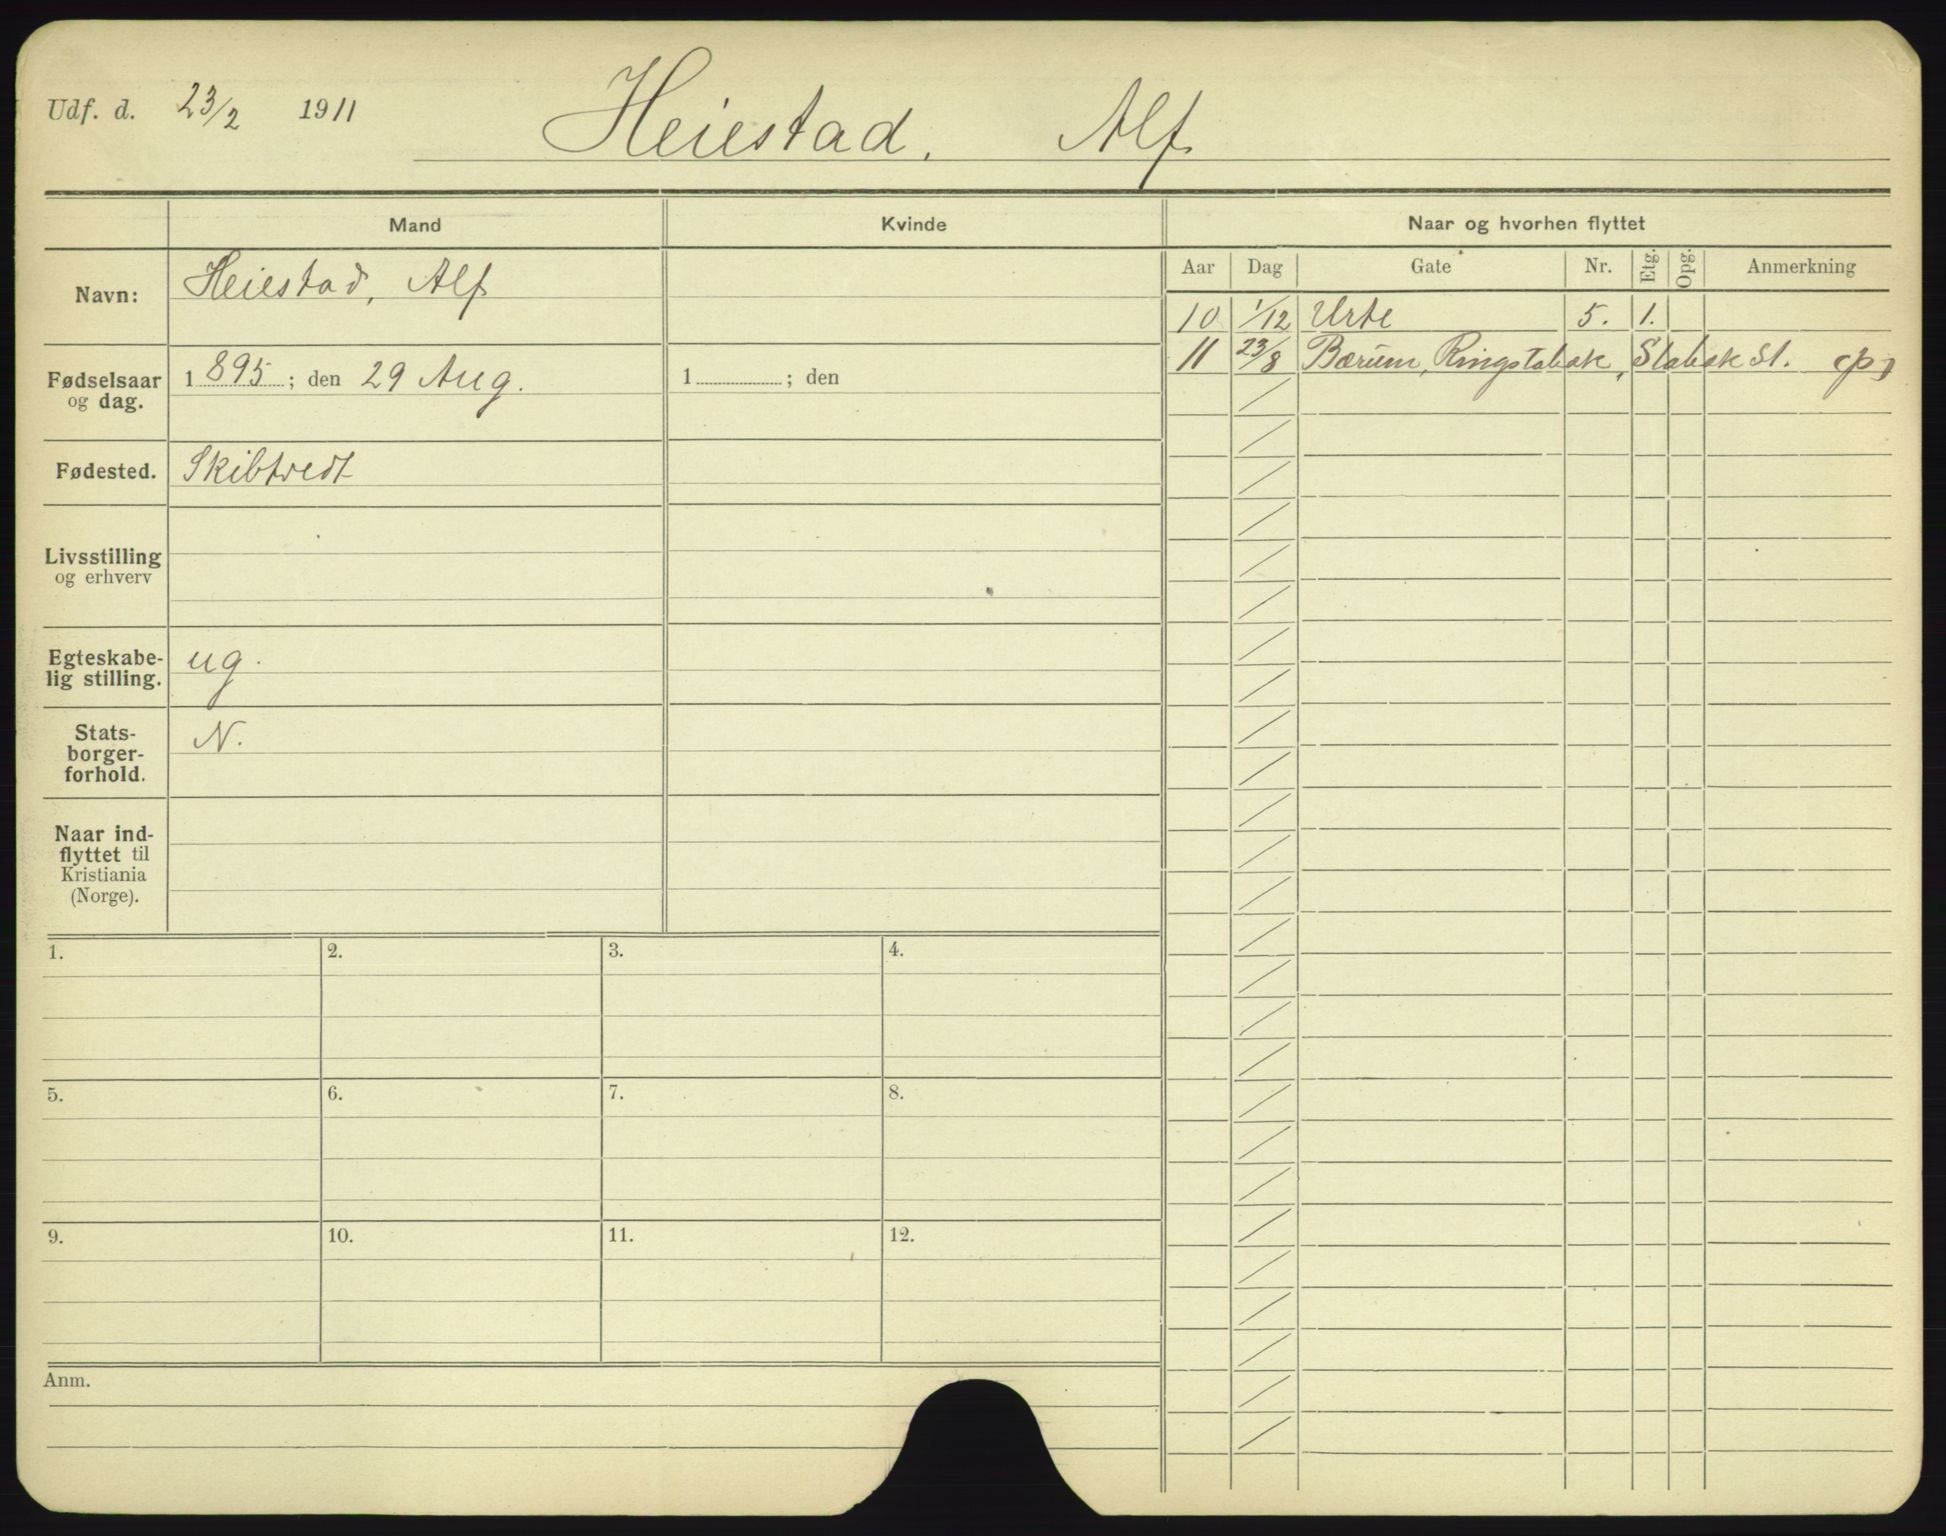 Udf. d. 23/2 1911
Heiestad, Alf
Mand
Kvinde
Naar og hvorhen flyttet
Navn: Heiestad, Alf
Aar Dag Gate Nr. Etg. Opg. Anmerkning
10 1/12 Urte 5. 1.
11 23/8 Bærum, Ringstabæk, Stabæk St.
Fødselsaar
og dag.
1895; den 29 Aug.
1 ; den
Fødested. Skibtvedt
Livsstilling
og erhverv
Egteskabe-
lig stilling.
ug.
Stats-
borger-
forhold.
N.
Naar ind-
flyttet til
Kristiania
(Norge).
1. 2. 3. 4.
5. 6. 7. 8.
9. 10. 11. 12.
Anm.